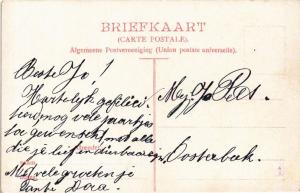 BRIEFKAART
(CARTE POSTALE).
Algemeene Postvereeniging (Union postale universelle).
Beste Jo!
Hartelijk gefelici
nog vele jaartjes
toegewenscht met alle
die je lief en dierbaar zijn
Mej. Jo
Oosterbeek.
Met vele groeten je
Tante Dora.